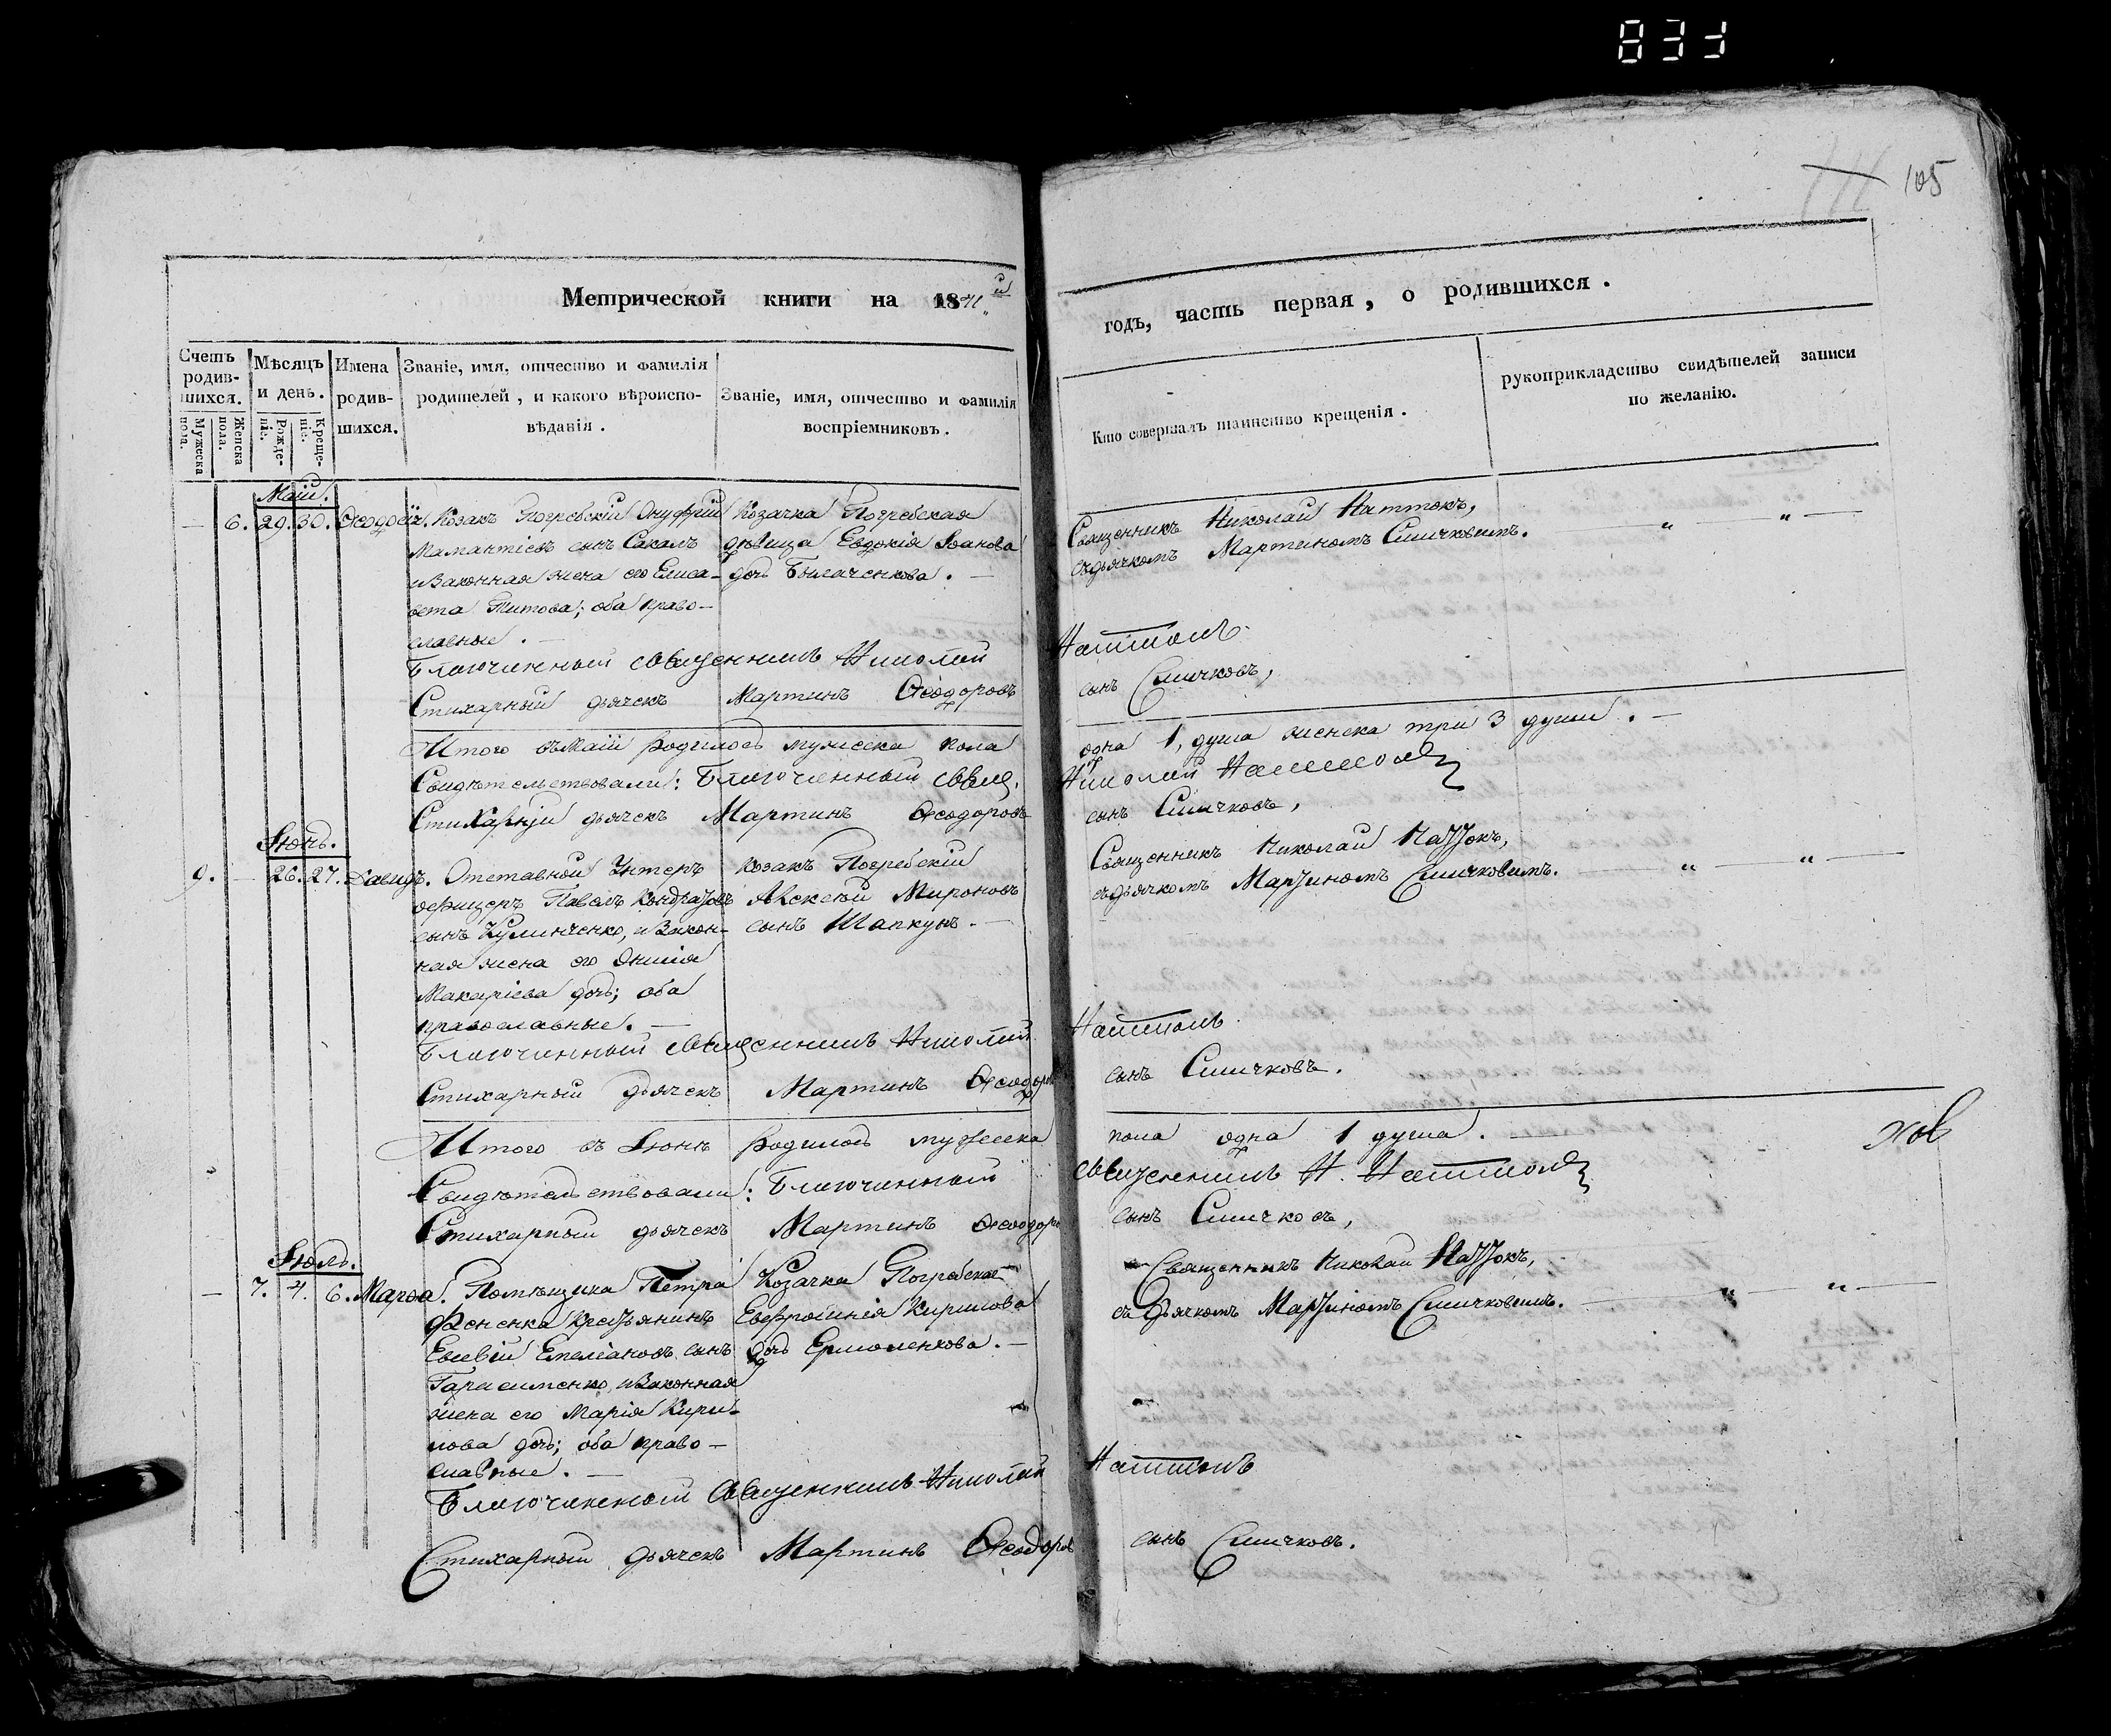 831
105
Метрической книги на 1841й
годъ, часть первая, о родившихся.
Счетъ родив-шихся.
Мужеска пола.
Женска пола.
Мѣсяцъ и день.
Рожде-ніе.
Креще-ніе.
Имена родив-шихся.
Званіе, имя, отчество и фамилія родителей, и какого вѣроиспо-вѣданія.
Званіе, имя, отчество и фамилія воспріемниковъ.
Кто совершалъ таинство крещенія.
рукоприкладство свидѣтелей записи по желанію.
Маій.
— 6. 29. 30.
Козакъ Погребскій Онуфрій
Мамантіевъ сынъ Сакалъ
и законная жена его Елиса-
вета Титова; оба право-
славные. —
Козачка Погребская
дѣвица Евдокія Іванова
дочь
Священникъ Николай Наттокъ,
съ дьячкомъ Мартиномъ Сличковымъ.
Благочинный священникъ Николай Наттокъ
Стихарный дьячекъ Мартинъ Ѳеодоровъ сынъ Сличковъ,
Итого въ Маіи родилось мужеска пола одна 1, душа женска три 3 души. —
Свидѣтельствовали: Благочинный свящ. Николай Наттокъ
Стихарный дьячекъ Мартинъ Ѳеодоровъ сынъ Сличковъ,
Іюнь.
9. — 26. 27. Давидъ.
Отставной Унтеръ
офицеръ Павелъ Кондратовъ
сынъ Кулинченко, и закон-
ная жена его
Макаріева дочь; оба
православные. —
Козакъ Погребскій
Алексѣй Мироновъ
сынъ Шапкунъ. —
Священникъ Николай Наттокъ,
съ дьячкомъ Мартиномъ Сличковымъ.
Благочинный священникъ Николай Наттокъ
Стихарный дьячекъ Мартинъ Ѳеодоровъ сынъ Сличковъ.
Итого въ Іюнѣ родилось мужеска пола одна 1 душа.
Свидѣтельствовали: Благочинный священникъ Н. Наттокъ
Стихарный дьячекъ Мартинъ Ѳеодоровъ сынъ Сличковъ,
Іюль.
— 7. 4. 6. Марѳа.
Помѣщика Петра
Фененка крестьянинъ
Евсевій Емеліановъ сынъ
Гарасименко, и законная
жена его Марія Кири-
лова дочь; оба право-
славные. —
Козачка Погребская
Евфросинія Кирилова
дочь Ермоленкова. —
Священникъ Николай Наттокъ,
съ дьячкомъ Мартиномъ Сличковымъ.
Благочинный священникъ Николай Наттокъ
Стихарный дьячекъ Мартинъ Ѳеодоровъ сынъ Сличковъ.